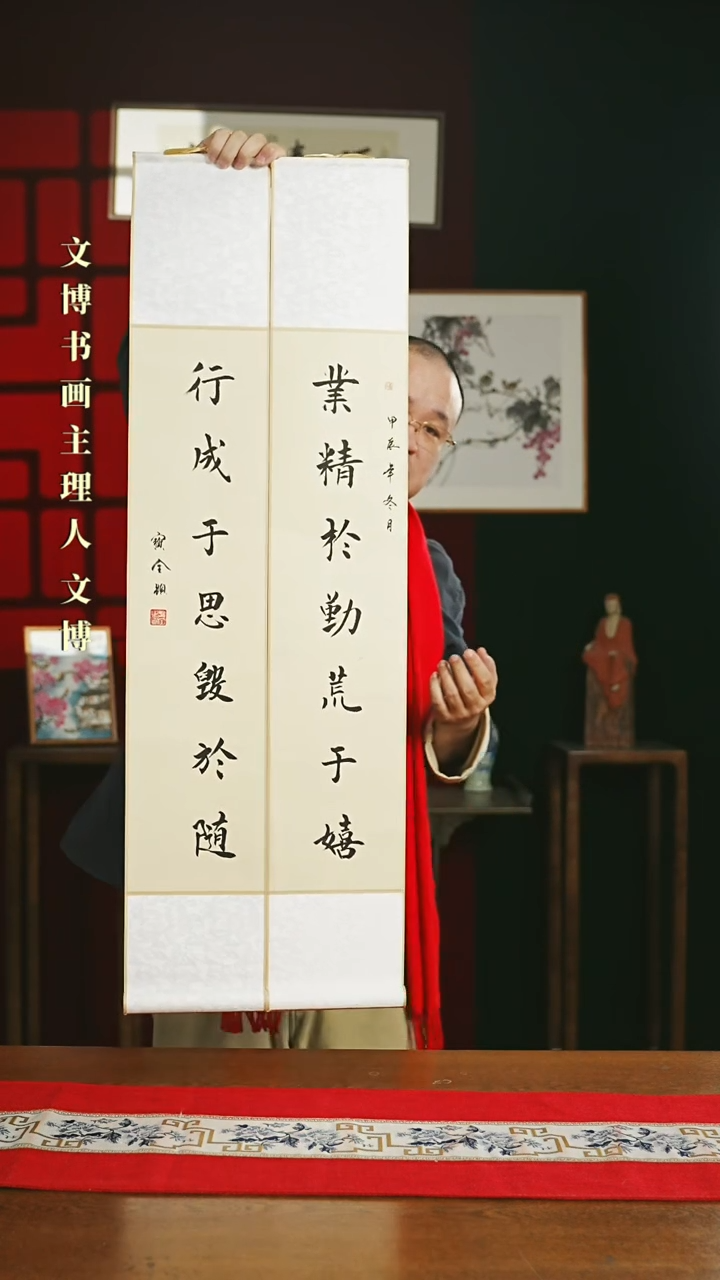 文博书画主理人文博
甲辰年冬月
業精於勤荒于嬉
行成于思毀於随